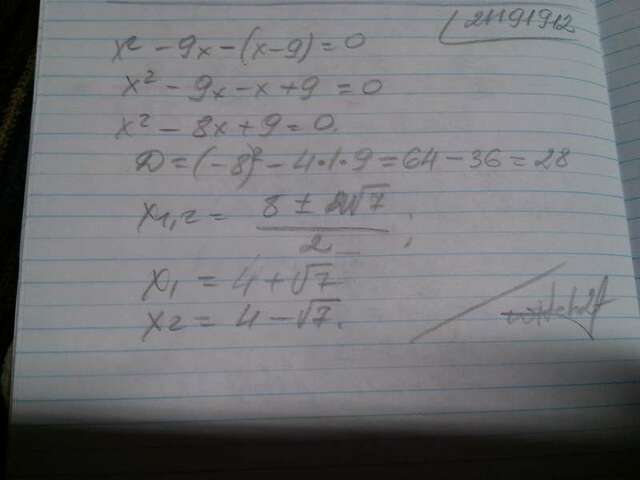 21191912
x² - 9x - (x - 9) = 0
x² - 9x - x + 9 = 0
x² - 8x + 9 = 0.
D = (-8)² - 4·1·9 = 64 - 36 = 28
x₁,₂ = (8 ± 2√7) / 2;
x₁ = 4 + √7
x₂ = 4 - √7.